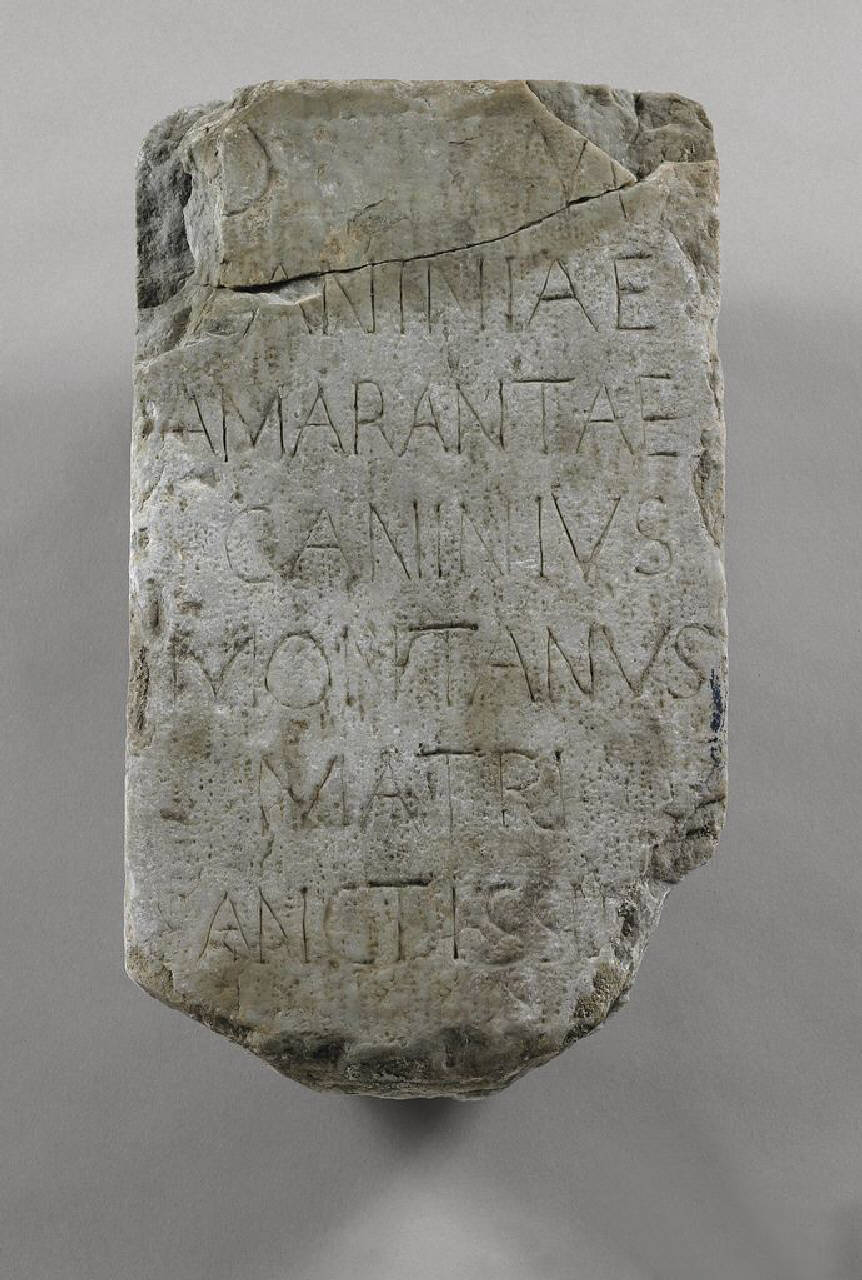 D M
CANINIAE
AMARANTAE
CANINIVS
MONTANVS
MATRI
ANCTISSI